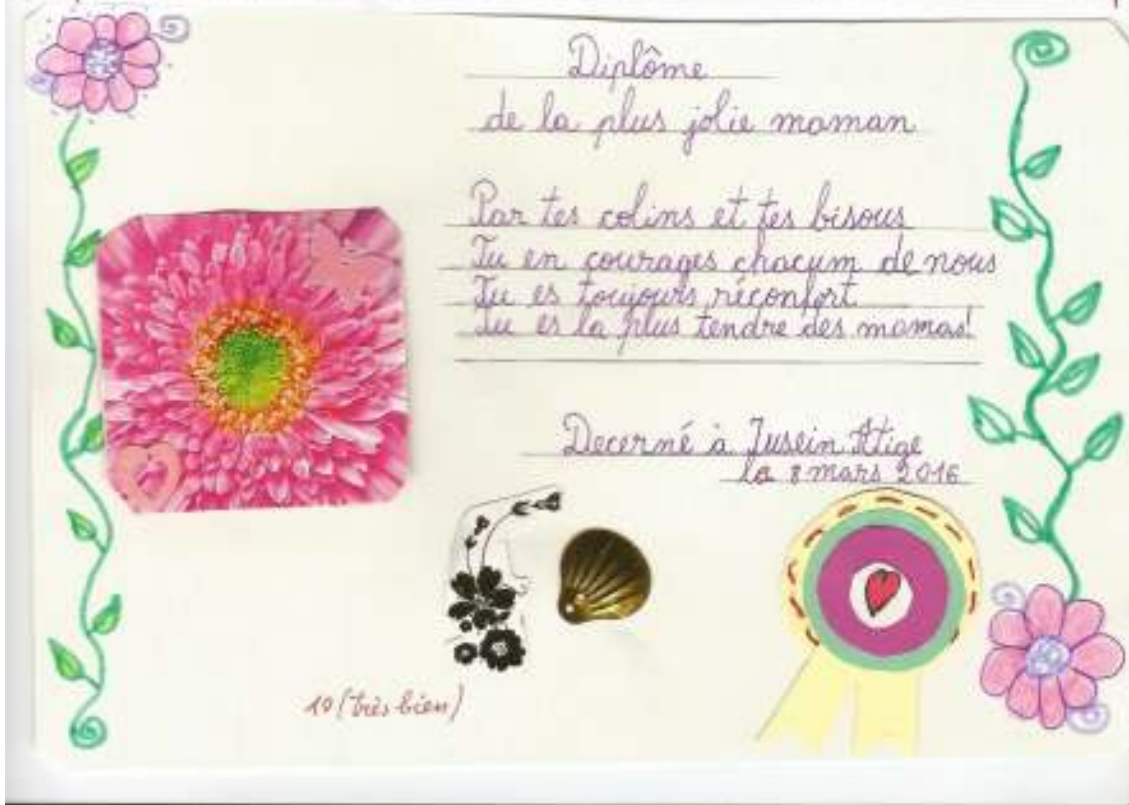 Diplôme
de la plus jolie maman
Par tes colins et tes bisous
Tu en courages chacum de nous
Tu es toujours réconfort
Tu es la plus tendre des mamas!
Decerné à Jusein Atige
la 8 mars 2016
10 (très bien)